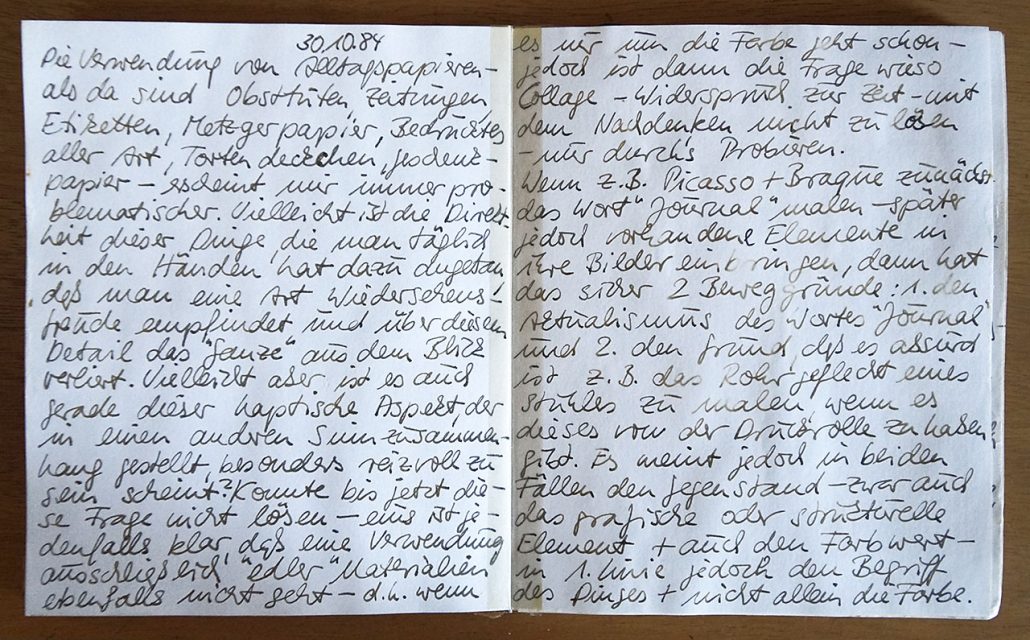 30.10.84
Die Verwendung von Alltagspapieren –
als da sind Obsttüten, Zeitungen,
Etiketten, Metzgerpapier, Bedrucktes
aller Art, Tortendeckchen, Geschenk-
papier – erscheint mir immer pro-
blematischer. Vielleicht ist die Direkt-
heit dieser Dinge, die man täglich
in den Händen hat dazu angetan,
daß man eine Art Wiedersehens-
freude empfindet und über diesem
Detail das "Ganze" aus dem Blick
verliert. Vielleicht aber ist es auch
gerade dieser haptische Aspekt, der
in einen anderen Sinnzusammen-
hang gestellt, besonders reizvoll zu
sein scheint? Konnte bis jetzt die-
se Frage nicht lösen – eins ist je-
denfalls klar, daß eine Verwendung
ausschließlich "edler" Materialien
ebenfalls nicht geht – d.h. wenn
es nur um die Farbe geht schon –
jedoch ist dann die Frage wieso
Collage – Widerspruch zur Zeit – mit
dem Nachdenken nicht zu lösen
– nur durch's Probieren.
Wenn z.B. Picasso + Braque zunächst
das Wort "Journal" malen – später
jedoch vorhandene Elemente in
ihre Bilder einbringen, dann hat
das sicher 2 Beweggründe: 1. den
Aktualismus des Wortes "Journal"
und 2. den Grund, daß es absurd
ist z.B. das Rohrgeflecht eines
Stuhles zu malen, wenn es
dieses von der Druckrolle zu haben
gibt. Es meint jedoch in beiden
Fällen den Gegenstand – zwar auch
das grafische oder strukturelle
Element + auch den Farbwert –
in 1. Linie jedoch den Begriff
des Dinges + nicht allein die Farbe.